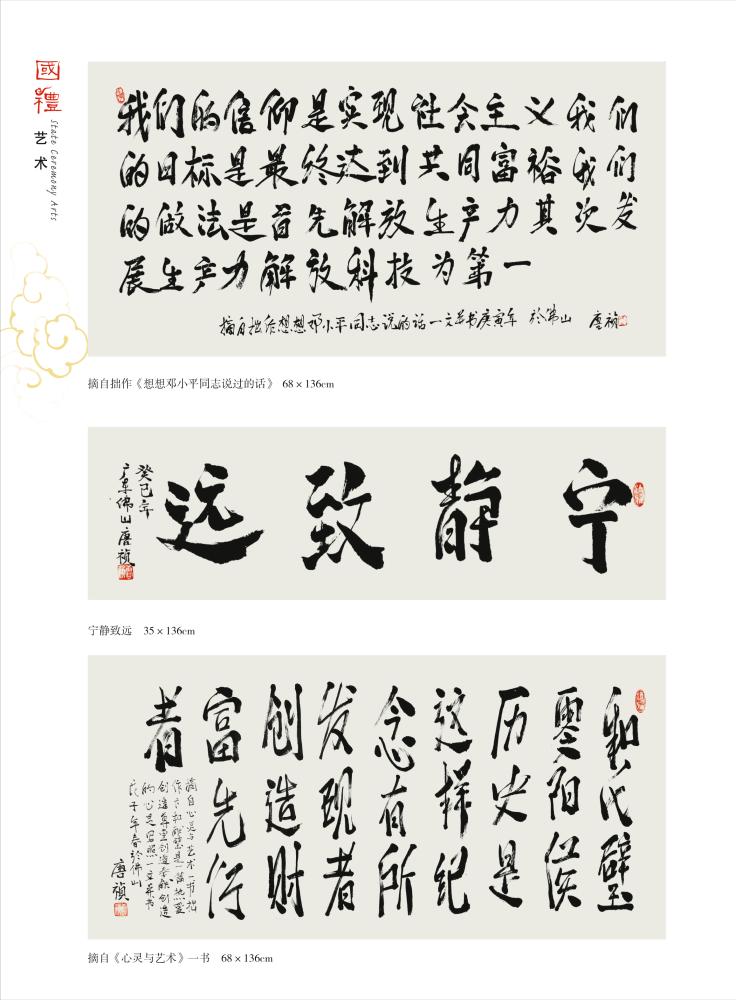 國禮
艺术
State Ceremony Arts
我们的信仰是实现社会主义我们
的目标是最终达到共同富裕我们
的做法是首先解放生产力其次发
展生产力解放科技为第一
摘自拙作想想邓小平同志说的话一文并书庚寅年於佛山 唐祯
摘自拙作《想想邓小平同志说过的话》 68×136cm
宁静致远
癸巳年
广东佛山唐祯
宁静致远 35×136cm
和氏璧
零阳侯
历史是
这样纪
念有所
发现者
创造财
富先行
者
摘自心灵与艺术一书拙
创造尊重创造奉献创造
一文并书
戊子年春於佛山
唐祯
摘自《心灵与艺术》一书 68×136cm